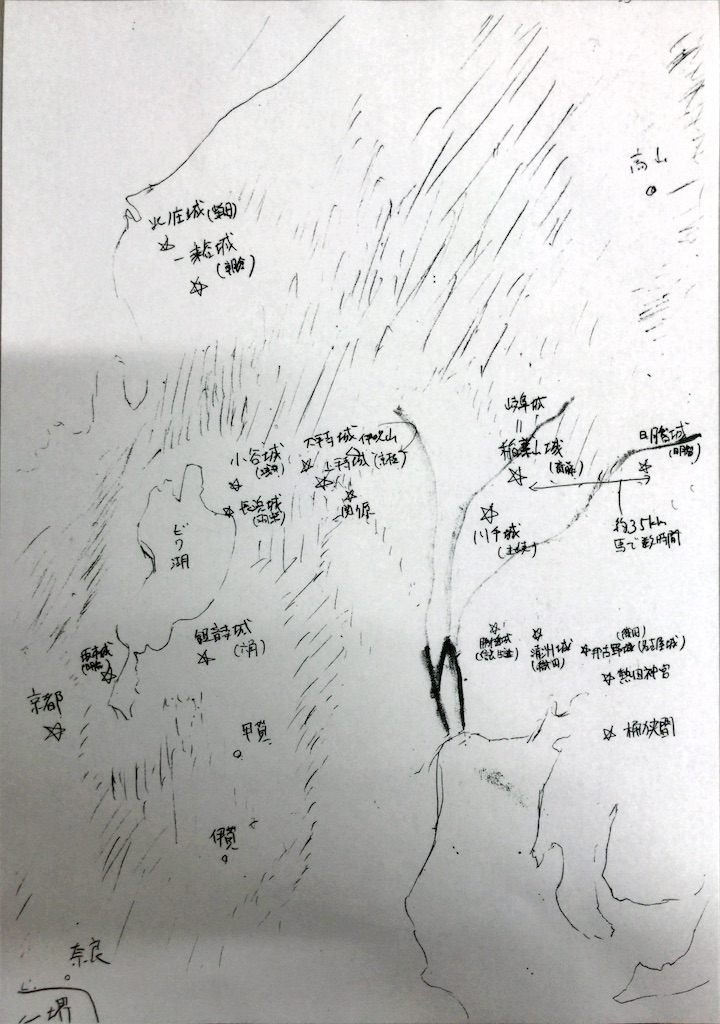 高山
北庄城(柴田)
一乗谷城
(朝倉)
岐阜城
=
稲葉山城
(斎藤)
日勝城
(日勝)
約35km
馬で数時間
大平寺城
伊吹山
上平寺城(京極)
関ヶ原
小谷城
(浅井)
長浜城
(羽柴)
ビワ湖
川手城
(土岐)
観音寺城
(六角)
坂本城
(明智)
京都
勝幡城
清州城
(織田)
(織田)
那古野城(名古屋城)
熱田神宮
桶狭間
甲賀
伊賀
奈良
堺